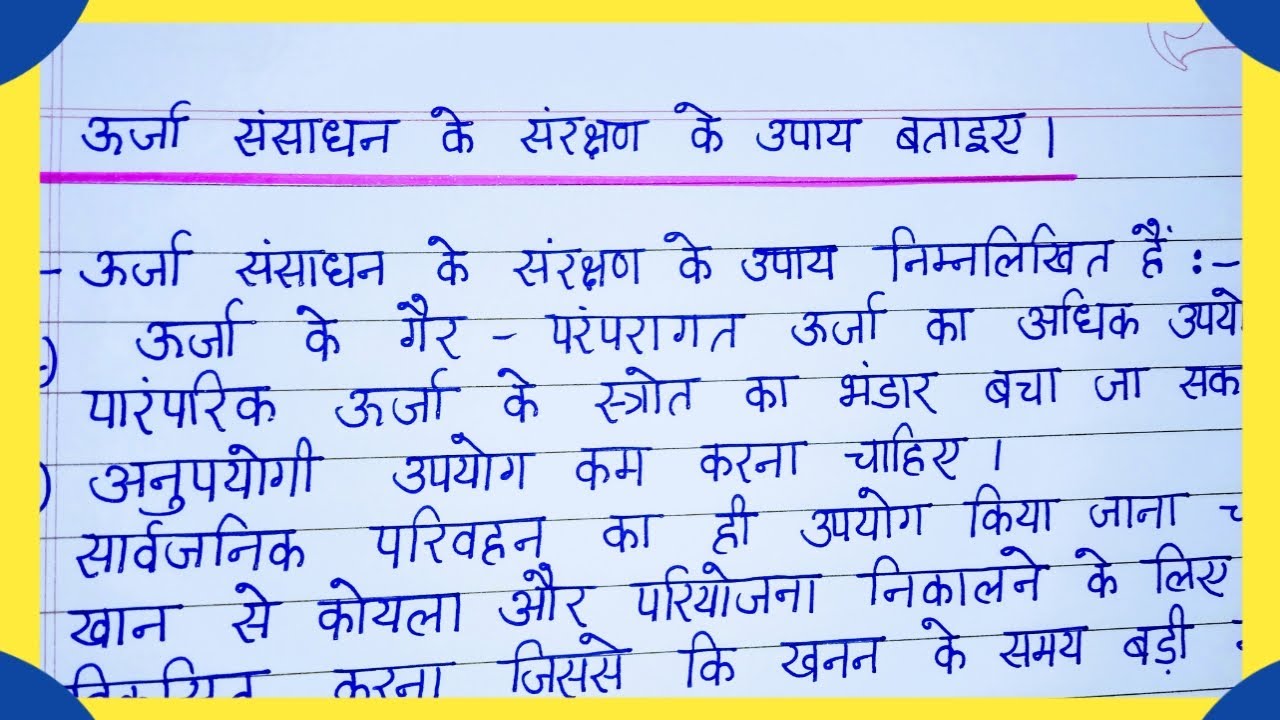 ऊर्जा संसाधन के संरक्षण के उपाय बताइए ।
- ऊर्जा संसाधन के संरक्षण के उपाय निम्नलिखित हैं :-
ऊर्जा के गैर - परंपरागत ऊर्जा का अधिक
पारंपरिक ऊर्जा के स्त्रोत का भंडार बचा जा सक
अनुपयोगी उपयोग कम करना चाहिए ।
सार्वजनिक परिवहन का ही उपयोग किया जाना
खान से कोयला और परियोजना निकालने के लिए
करना जिससे कि खनन के समय बड़ी